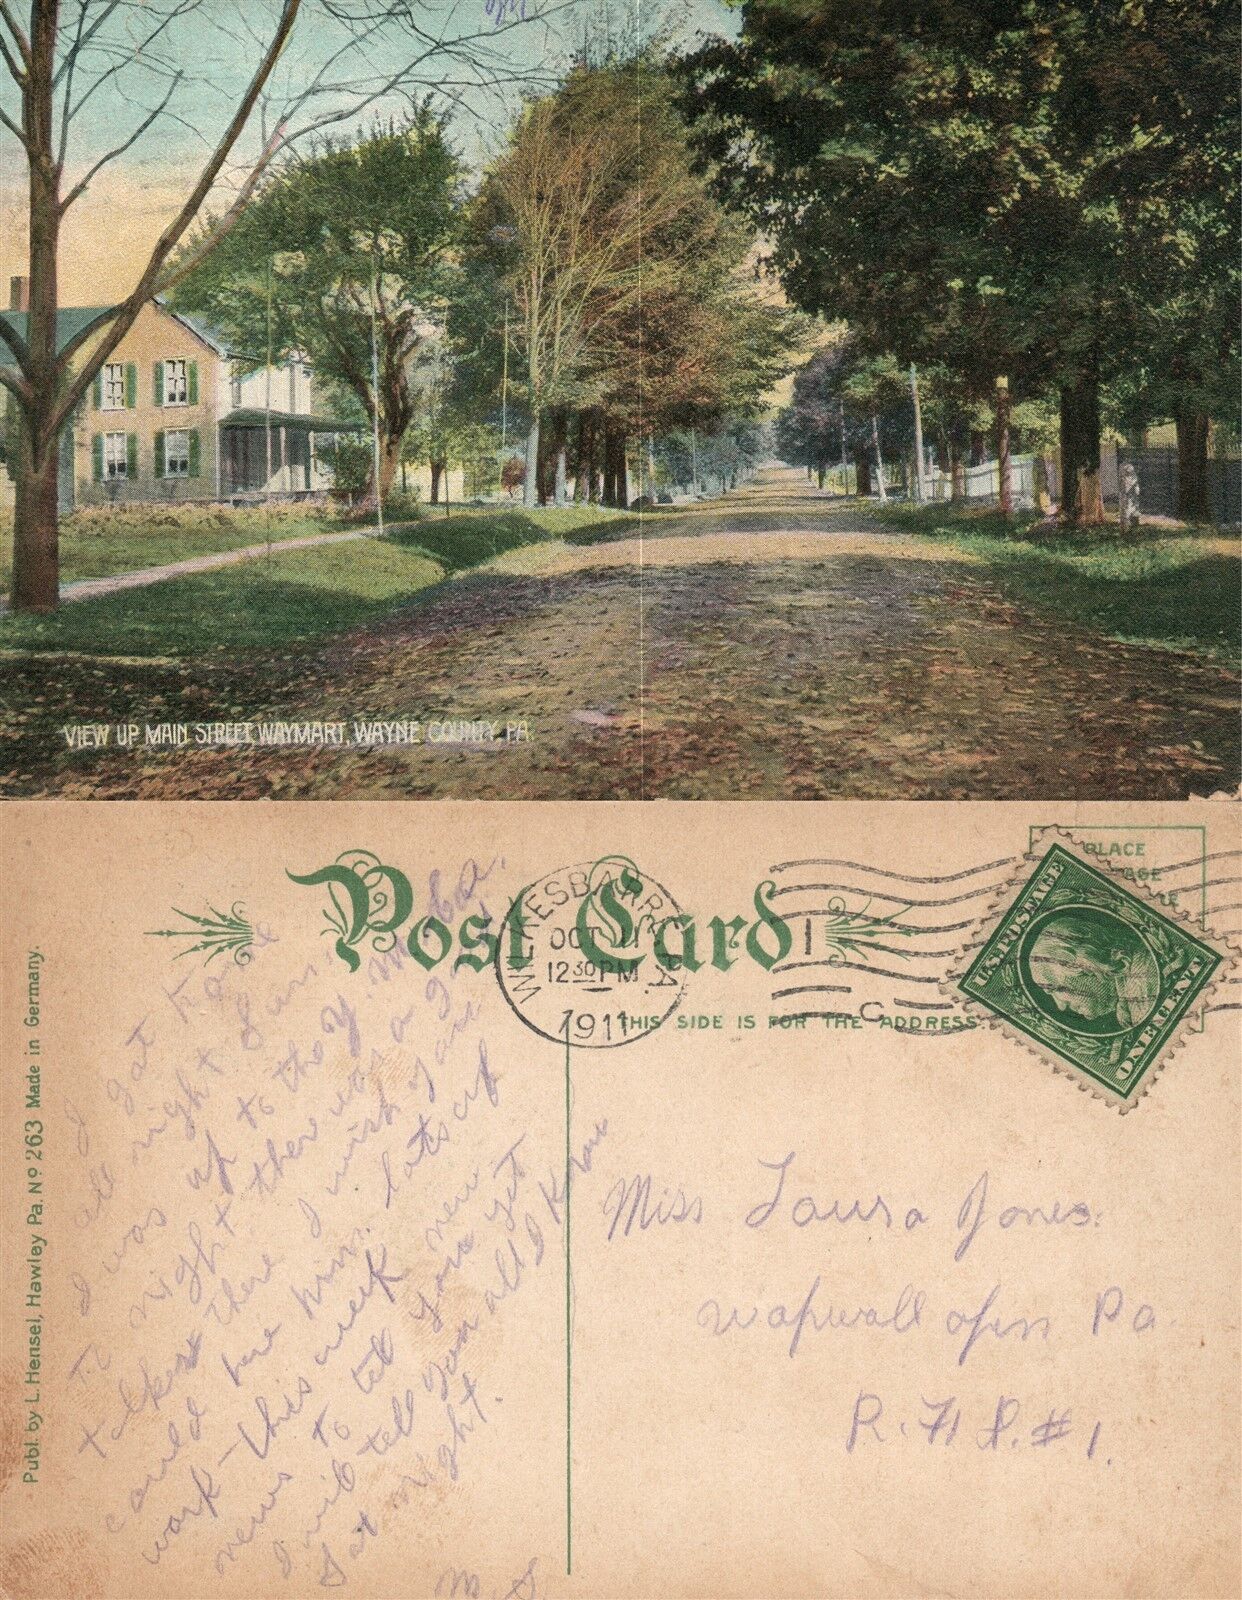 VIEW UP MAIN STREET, WAYMART, WAYNE COUNTY, PA.
Post Card
PLACE
AGE
RE
WILKESBARRE PA.
OCT 11
12 30 PM
1911
1
C
U.S. POSTAGE
ONE CENT
THIS SIDE IS FOR THE ADDRESS.
Publ. by L. Hensel, Hawley Pa. No 263 Made in Germany.
I gat home
all right Sun.
I was up to the Y. M. C. a.
To night there was a
talker there I wish you
could here him. lats of
work this week
news to tel you
I will tell you all I know
Sat night.
M. S
Miss Laura Jones.
Wapwallopen Pa.
R. F. D. # 1.